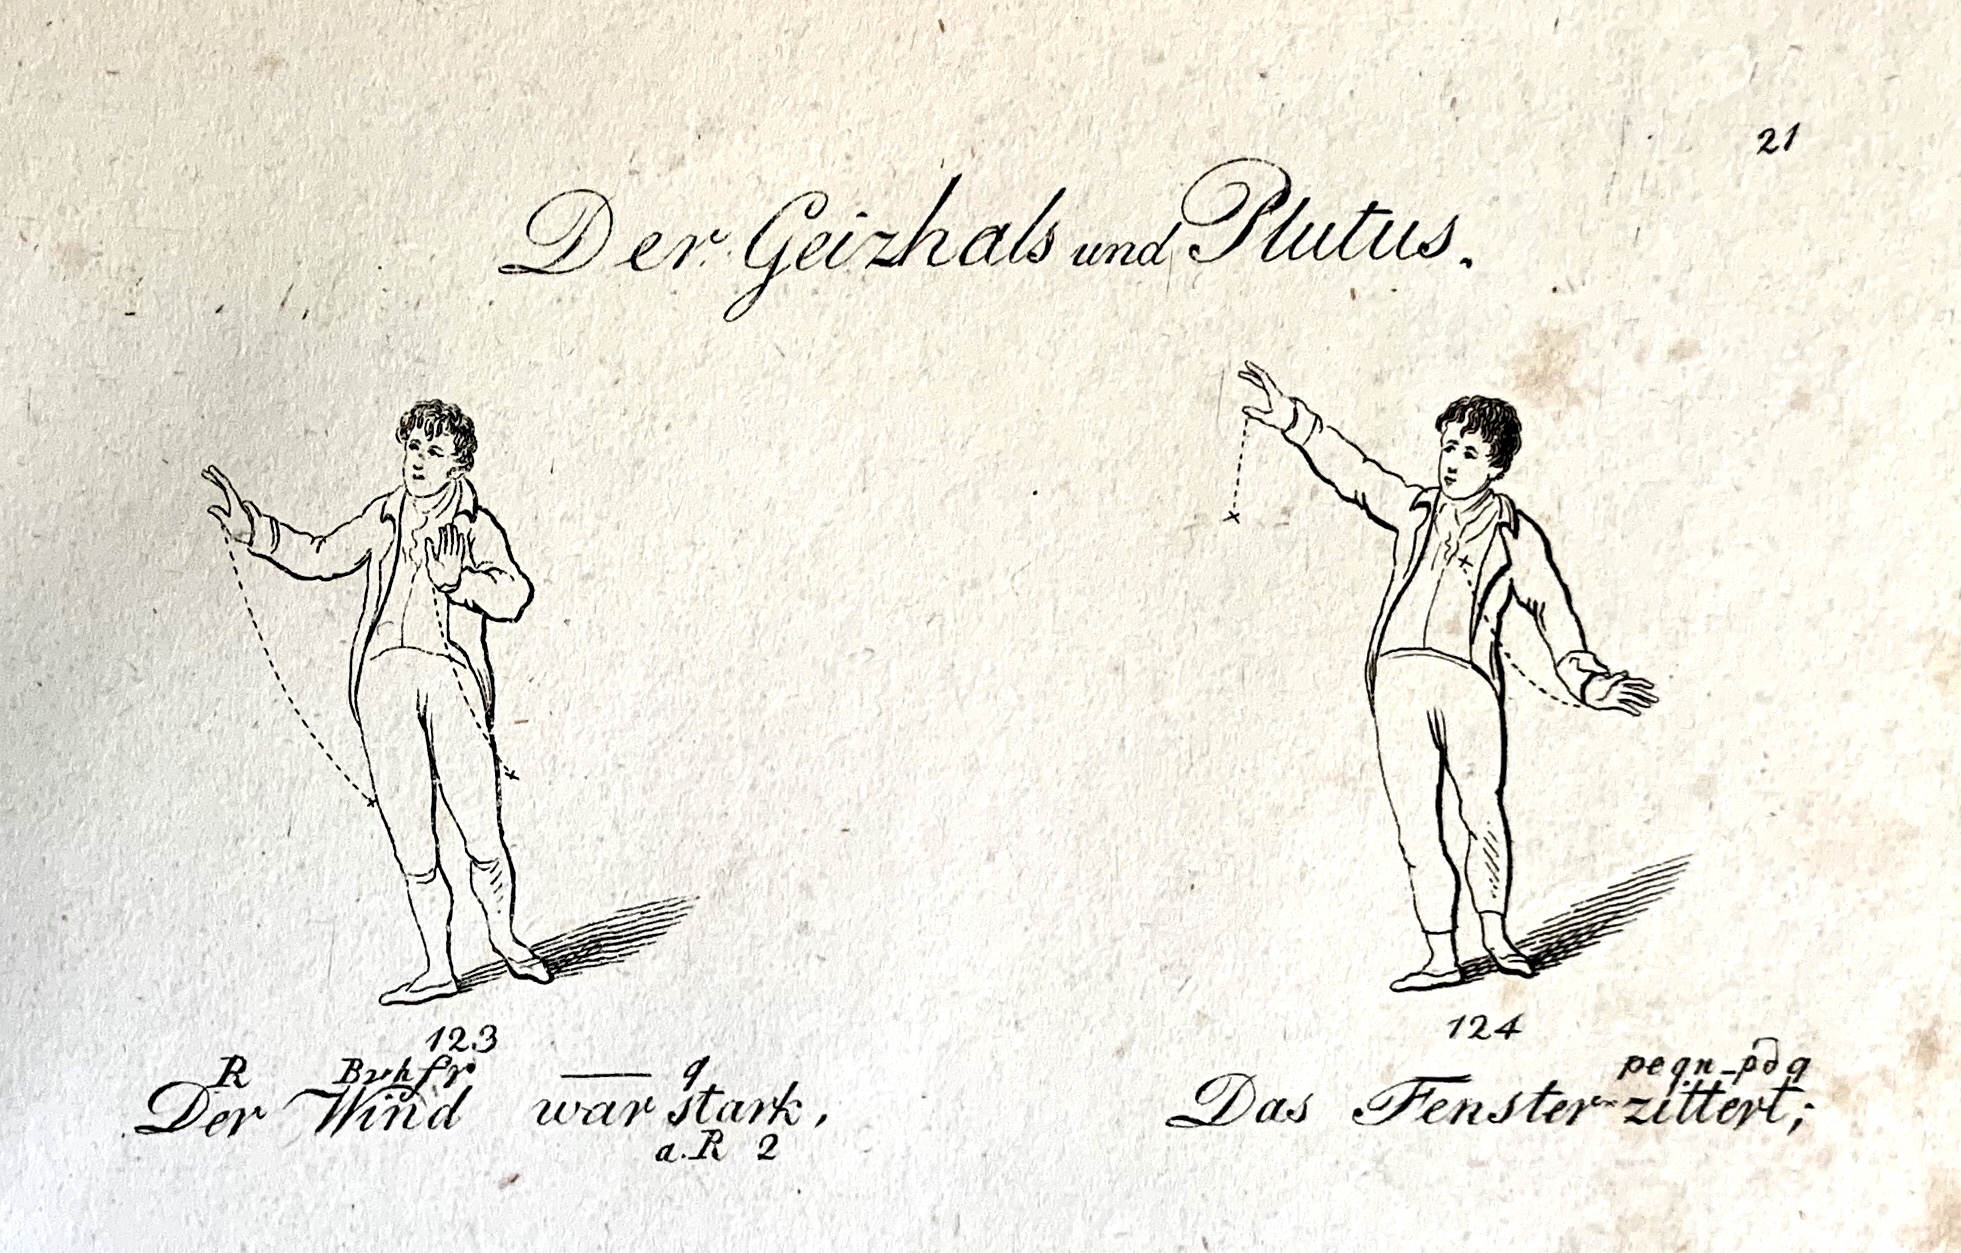 21
Der Geizhals und Plutus.
123
R Bvhfr — q
Der Wind war stark,
a.R 2
124
peqn-pdq
Das Fenster zittert;